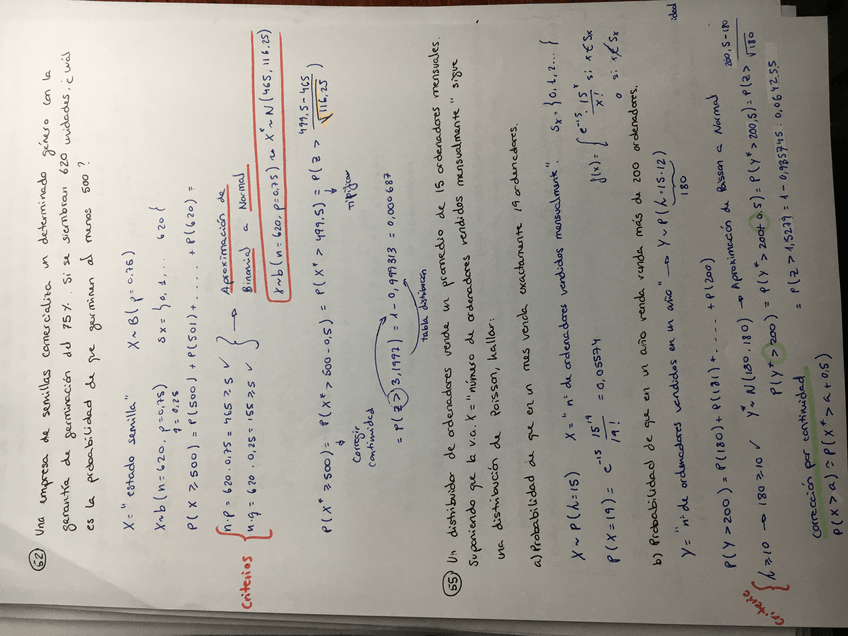 62 Una empresa de semillas comercializa un determinado género con la
garantía de germinación del 75%. Si se siembran 620 unidades, ¿cuál
es la probabilidad de que germinen al menos 500?
X = "estado semilla" X ~ B(p=0.75)
X ~ b(n=620, p=0,75) Sx = {0, 1, ... 620{
q = 0,25
P(X ≥ 500) = P(500) + P(501) + ..... + P(620) =
Criterios { n·p = 620 · 0.75 = 465 ≥ 5 ✓ } → Aproximación de
n·q = 620 · 0.25 = 155 ≥ 5 ✓ Binomial a Normal
X ~ b(n=620, p=0,75) ≈ X* ~ N(465, 116.25)
P(X* ≥ 500) = P(X* > 500 - 0,5) = P(X* > 499,5) = P(Z > 499,5 - 465 / √116,25)
Corregir continuidad
Tipificar
= P(Z > 3,1992) = 1 - 0,999313 = 0,000687
tabla distribución
55 Un distribuidor de ordenadores vende un promedio de 15 ordenadores mensuales.
Suponiendo que la v.a. X = "número de ordenadores vendidos mensualmente" sigue
una distribución de Poisson, hallar:
a) Probabilidad de que en un mes venda exactamente 19 ordenadores.
X ~ P(λ=15) X = "nº de ordenadores vendidos mensualmente". Sx = {0, 1, 2... {
P(X = 19) = e^-15 15^19 / 19! = 0,05574
f(x) = { e^-15 15^x / x! si x ∈ Sx
0 si x ∉ Sx
b) Probabilidad de que en un año venda más de 200 ordenadores.
Y = "nº de ordenadores vendidos en un año" → Y ~ P(λ = 15·12)
180
P(Y > 200) = P(180) + P(181) + ..... + P(200)
criterio { λ ≥ 10 → 180 ≥ 10 ✓ Y* ~ N(180, 180) → Aproximación de Poisson a Normal
P(Y* > 200) = P(Y* > 200 + 0,5) = P(Y* > 200,5) = P(Z > 200,5 - 180 / √180
corrección por continuidad
= P(Z > 1,5279 = 1 - 0,935745 = 0,064255
P(X > a) ≈ P(X* > a + 0,5)